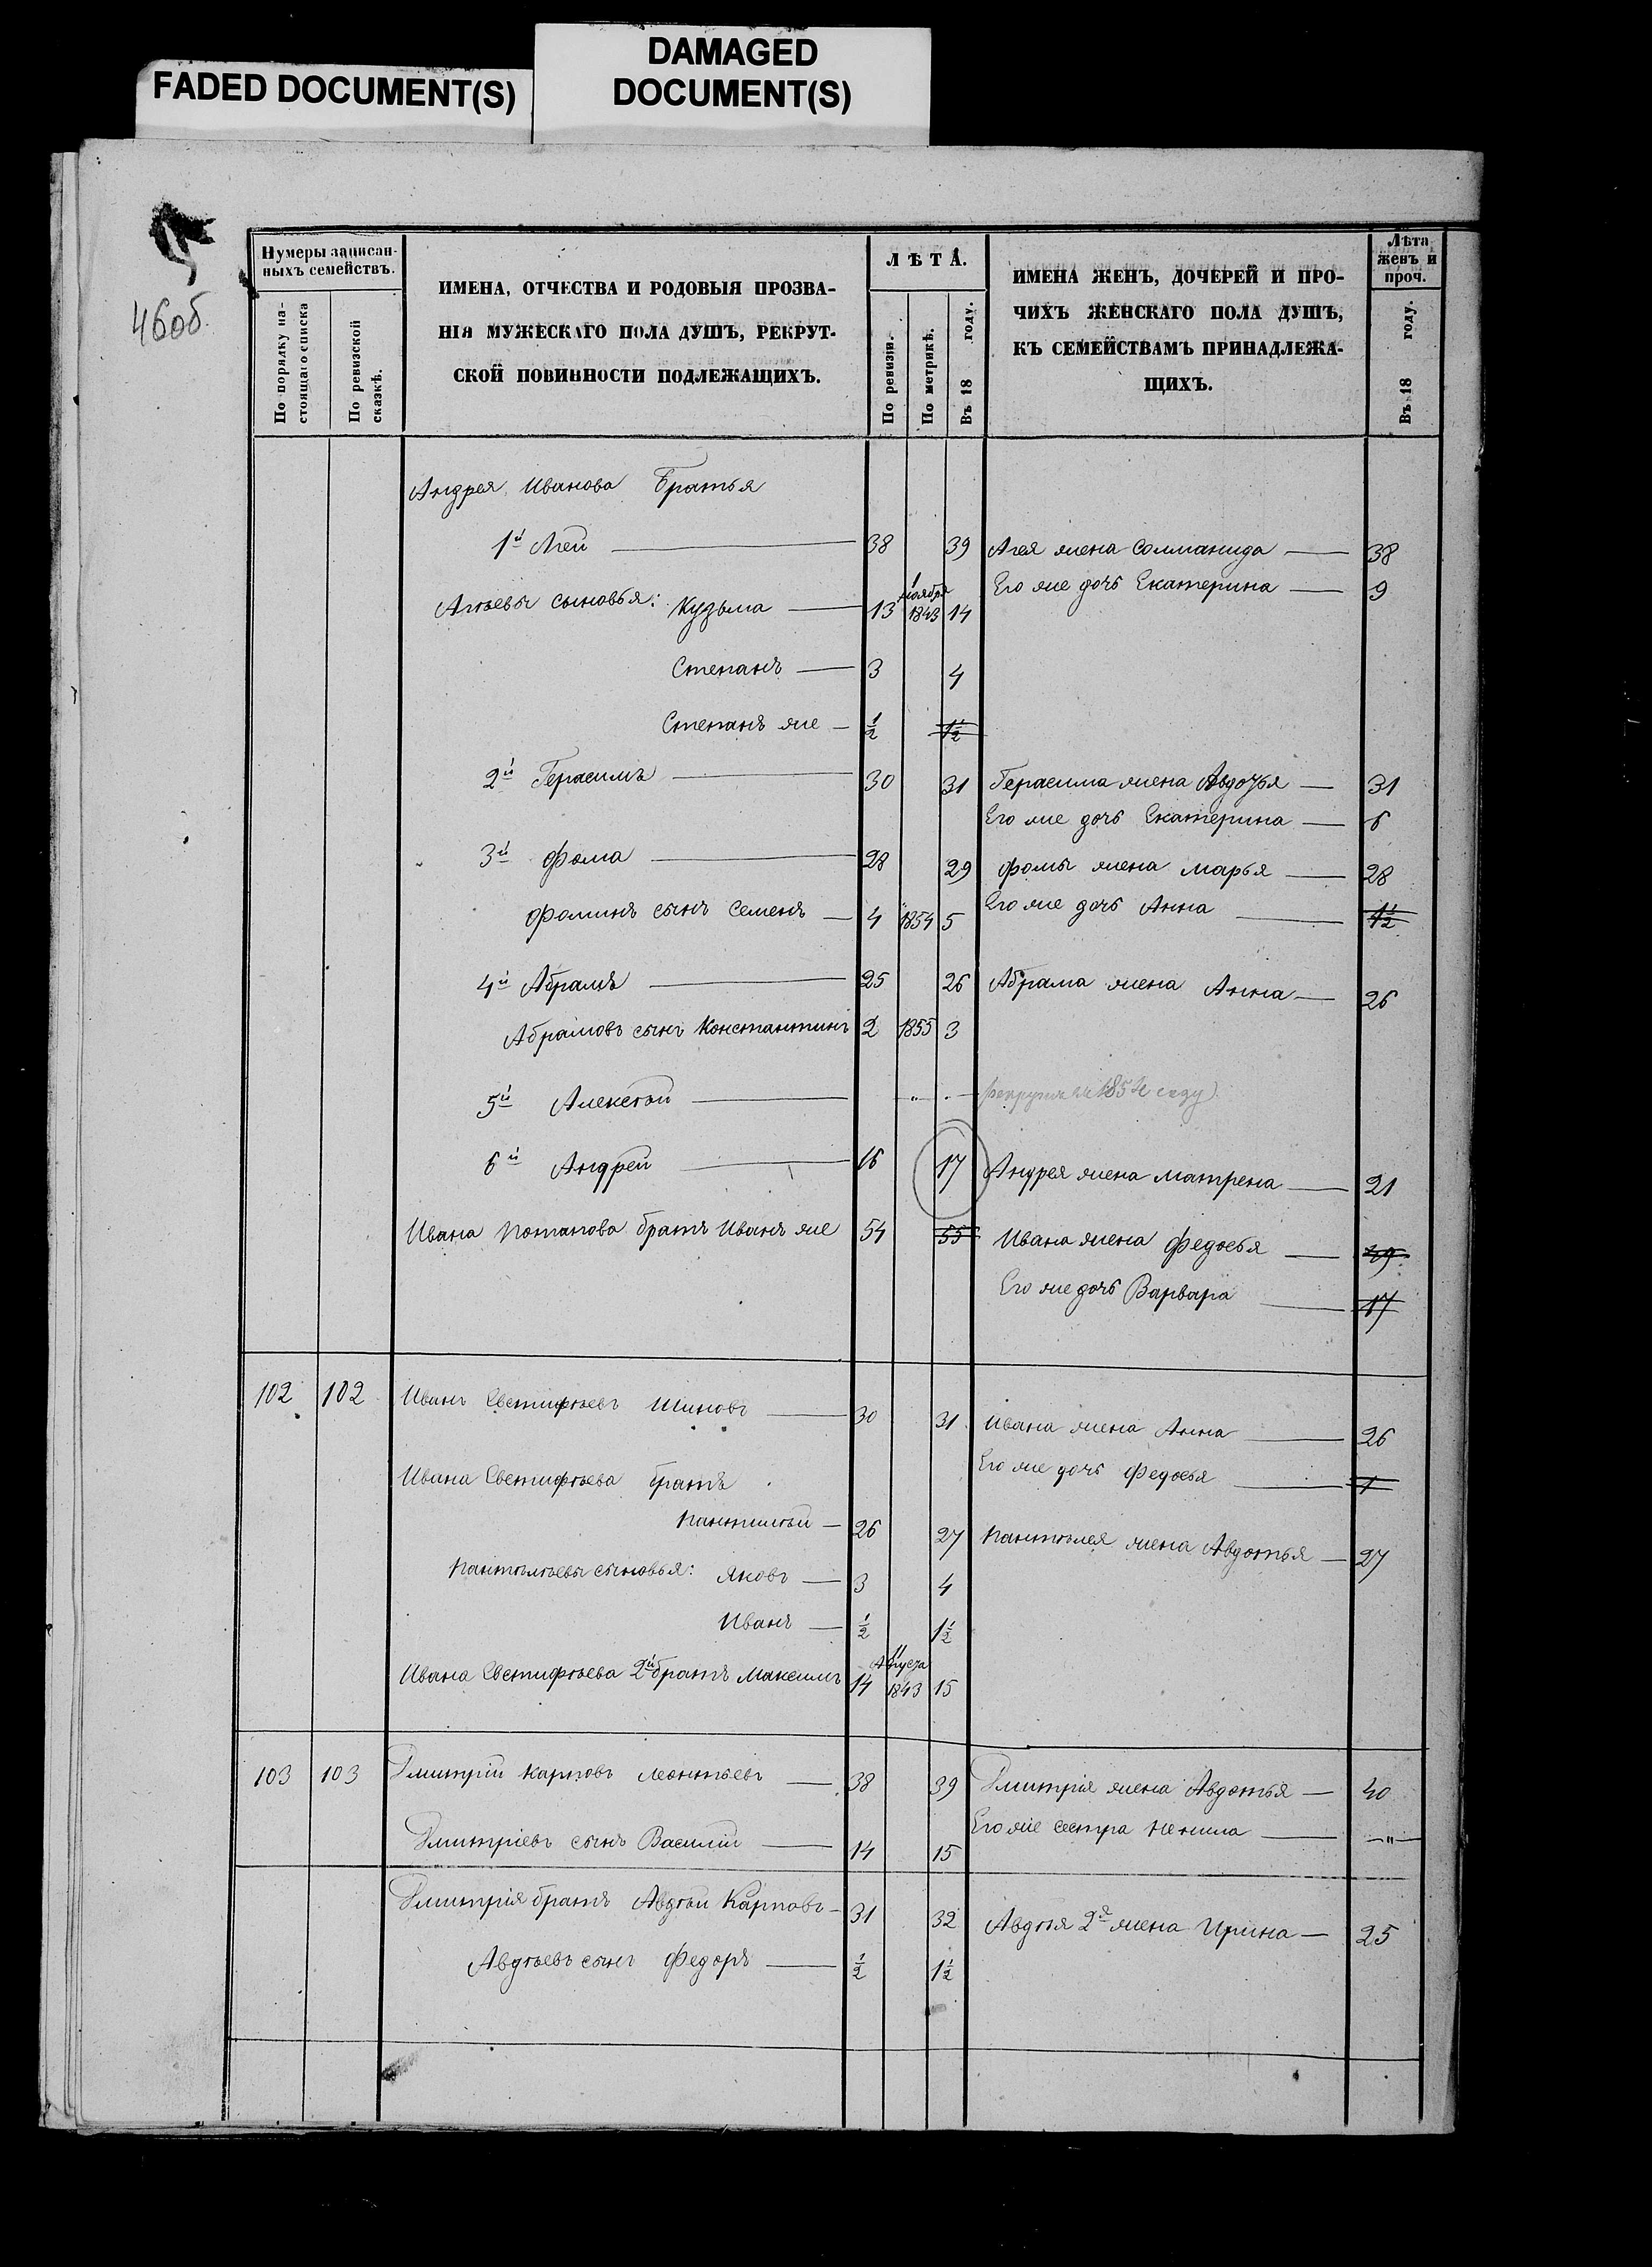 FADED DOCUMENT(S)
DAMAGED
DOCUMENT(S)
46об.
Нумеры записан-
ныхъ семействъ.
По порядку на-
стоящаго списка
По ревизской
сказкѣ.
ИМЕНА, ОТЧЕСТВА И РОДОВЫЯ ПРОЗВА-
НІЯ МУЖЕСКАГО ПОЛА ДУШЪ, РЕКРУТ-
СКОЙ ПОВИННОСТИ ПОДЛЕЖАЩИХЪ.
ЛѢТА.
По ревизіи.
По метрикѣ.
Въ 18 году.
ИМЕНА ЖЕНЪ, ДОЧЕРЕЙ И ПРО-
ЧИХЪ ЖЕНСКАГО ПОЛА ДУШЪ,
КЪ СЕМЕЙСТВАМЪ ПРИНАДЛЕЖА-
ЩИХЪ.
Лѣта
женъ и
проч.
Въ 18 году.
Андрея Иванова Братья
1й Агей — 38 39 Агея жена Солманида — 38
Его же дочь Екатерина — 9
Агѣевы сыновья: Кузьма — 13 1 ноября 1843 14
Степанъ — 3 4
Степанъ же — ½ 1½
2й Герасимъ — 30 31 Герасима жена Авдотья — 31
Его же дочь Екатерина — 6
3й Фома — 28 29 Фомы жена Марья — 28
Фоминъ сынъ Семенъ — 4 1854 5 Его же дочь Анна — 1½
4й Абрамъ — 25 26 Абрама жена Анна — 26
Абрамовъ сынъ Константинъ 2 1855 3
5й Алексѣй — „ . — (рекрутъ въ 1854 году)
6й Андрей — 16 17 Андрея жена Матрена — 21
Ивана Потапова братъ Иванъ же 54 55 Ивана жена Федосья — 49
Его же дочь Варвара — 17
102 102 Иванъ Евстифѣевъ Шиповъ — 30 31 Ивана жена Анна — 26
Его же дочь Федосья — 1
Ивана Евстифѣева братъ
Пантилѣй — 26 27 Пантѣлея жена Авдотья — 27
Пантѣлѣевы сыновья: Яковъ — 3 4
Иванъ — ½ 1½
Ивана Евстифѣева 2й братъ Максимъ 14 11 Августа 1843 15
103 103 Дмитрій Карповъ Леонтьевъ — 38 39 Дмитрія жена Авдотья — 40
Его же сестра Ненила — „ —
Дмитріевъ сынъ Василій — 14 15
Дмитрія братъ Авдѣй Карповъ — 31 32 Авдѣя 2я жена Ирина — 25
Авдѣевъ сынъ Федоръ — ½ 1½